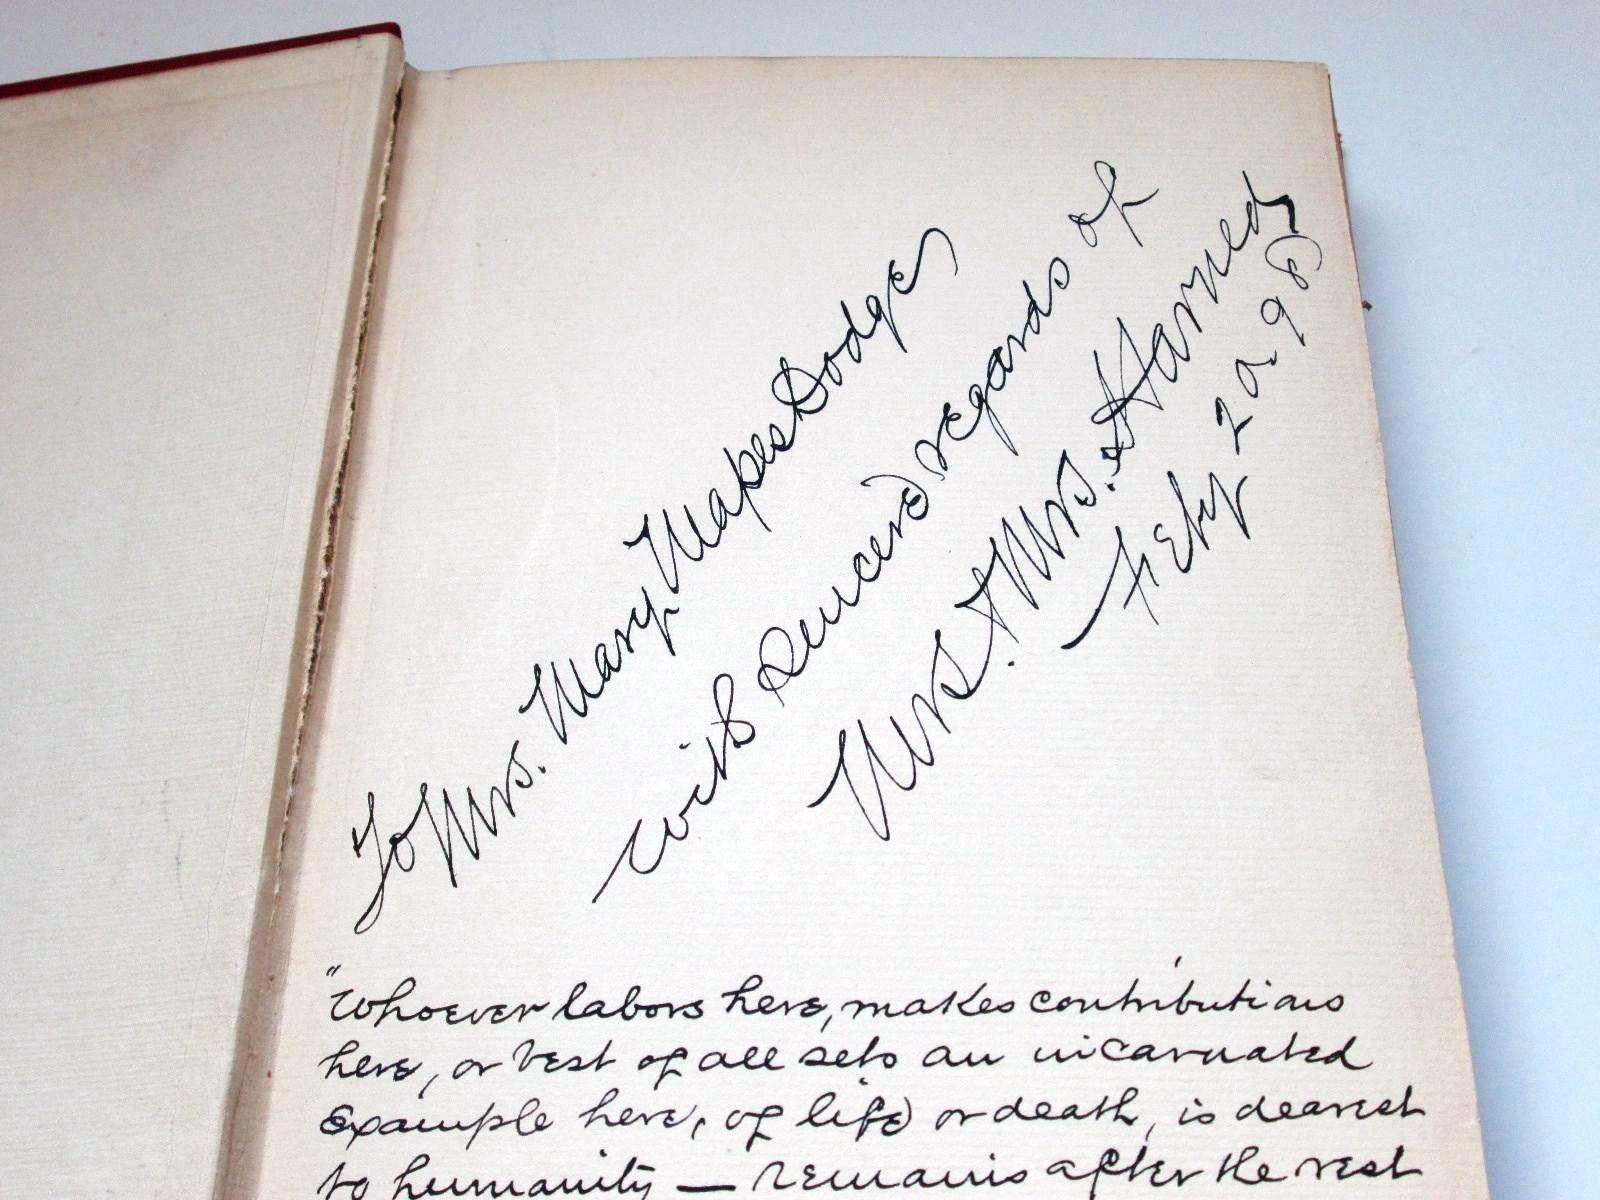 To Mrs. Mary Mapes Dodge,
with sincere regards of
Mr. & Mrs. Harned
Feby 20, 98
"Whoever labors here, makes contributions
here, or best of all sets an incarnated
example here, of life or death, is dearest
to humanity — remains after the rest